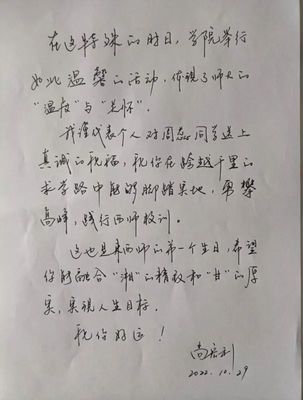 在这特殊的时日，学院举行
如此温馨的活动，体现了师大的
“温度”与“关怀”。
我谨代表个人对周磊同学送上
真诚的祝福，祝你在跨越千里的
求学路中能够脚踏实地，勇攀
高峰，践行西师校训。
这也是来西师的第一个生日，希望
你能融合“湘”的精致和“甘”的厚
实，实现人生目标。
祝你好运！
尚培利
2022.10.29